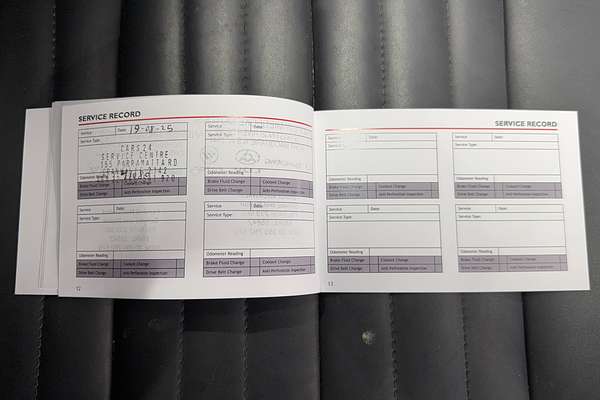 SERVICE RECORD
Service Date: 19-08-25
Service Type:
CARS24
SERVICE CENTRE
Odometer Reading
Brake Fluid Change Coolant Change
Drive Belt Change Anti-Perforation Inspection
Service Date:
Service Type:
Odometer Reading
Brake Fluid Change Coolant Change
Drive Belt Change Anti-Perforation Inspection
Service Date:
Service Type:
Odometer Reading
Brake Fluid Change Coolant Change
Drive Belt Change Anti-Perforation Inspection
Service Date:
Service Type:
Odometer Reading
Brake Fluid Change Coolant Change
Drive Belt Change Anti-Perforation Inspection
12
SERVICE RECORD
Service Date:
Service Type:
Odometer Reading
Brake Fluid Change Coolant Change
Drive Belt Change Anti-Perforation Inspection
Service Date:
Service Type:
Odometer Reading
Brake Fluid Change Coolant Change
Drive Belt Change Anti-Perforation Inspection
Service Date:
Service Type:
Odometer Reading
Brake Fluid Change Coolant Change
Drive Belt Change Anti-Perforation Inspection
Service Date:
Service Type:
Odometer Reading
Brake Fluid Change Coolant Change
Drive Belt Change Anti-Perforation Inspection
13